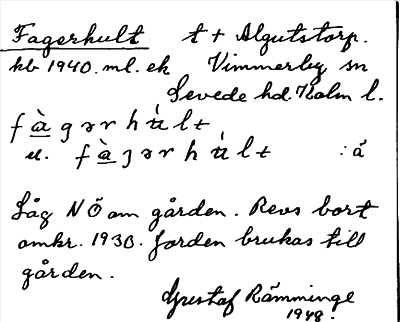 Fagerhult t + Algutstorp.
hb 1940. ml. ek Vimmerby sn
Sevede hd. Kalm l.
fàgərhú̵lt
el. fàȝərhú̵lt :å
Låg NÖ om gården. Revs bort
omkr. 1930. Jorden brukas till
gården.
Gustaf Rämminge
1948.